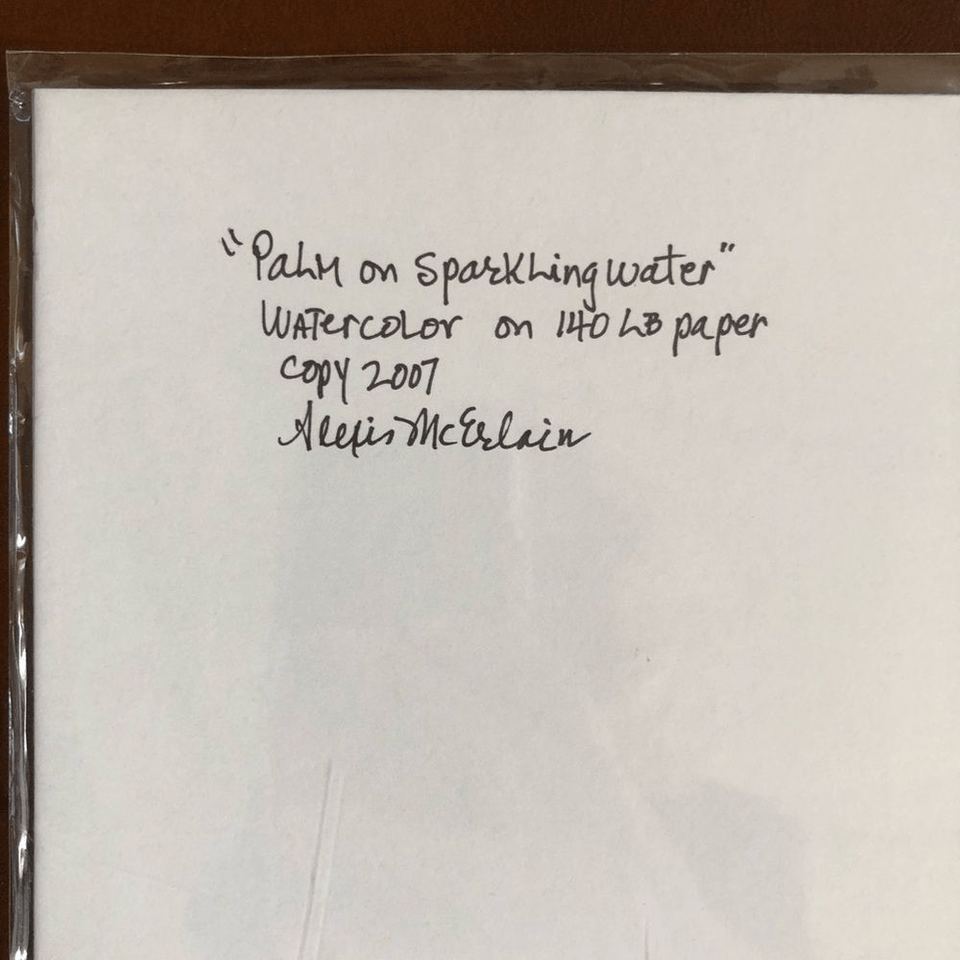 "Palm on Sparkling water"
Watercolor on 140 LB paper
copy 2007
Alexis McErlain